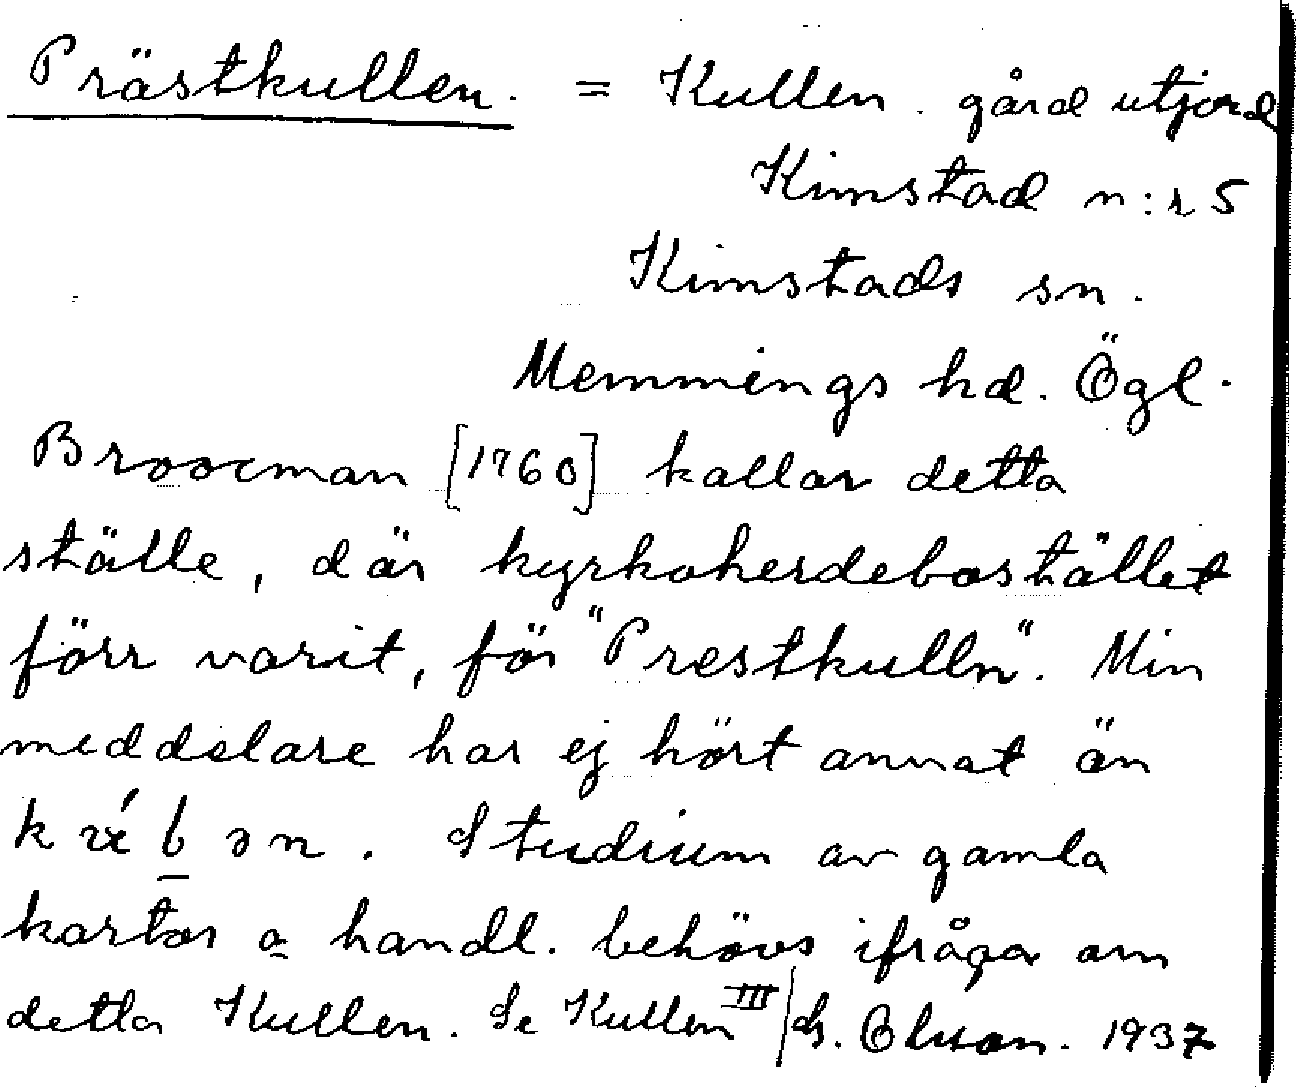 Prästkullen. = Kullen. gård utjord
Kimstad n:r 5
Kimstads sn.
Memmings hd. Ögl.
Broocman [1760] kallar detta
ställe, där kyrkoherdebostället
förr varit, för "Prestkulln". Min
meddelare har ej hört annat än
. Studium av gamla
kartor o. handl. behövs ifråga om
detta Kullen. Se Kullen III/ Olson. 1937